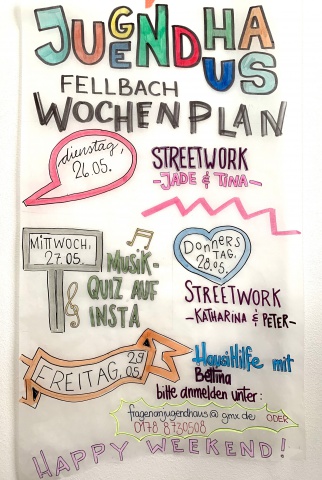 JUGENDHA
US
FELLBACH
WOCHENPLAN
dienstag,
26.05.
STREETWORK
-JADE & TINA-
MITTWOCH,
27.05.
MUSIK-
QUIZ AUF
INSTA
DONNERS
TAG,
28.05.
STREETWORK
-KATHARINA & PETER-
FREITAG, 29.
05.
HausiHilfe mit
Bettina
bitte anmelden unter:
fragenanjugendhaus@gmx.de ODER
0178 8730508
HAPPY WEEKEND!